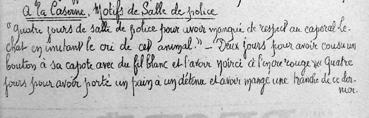 À la Caserne. Motifs de Salle de police
"Quatre jours de salle de police pour avoir manqué de respect au caporal Le-
chat en imitant le cri de cet animal." — Deux jours pour avoir cousu un
bouton à sa capote avec du fil blanc et l'avoir noirci à l'encre rouge. Quatre
jours pour avoir porté un pain à un détenu et avoir mangé une tranche de ce der-
nier.